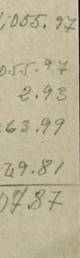 ,055.97
055.97
2.93
63.99
49.81
07.87